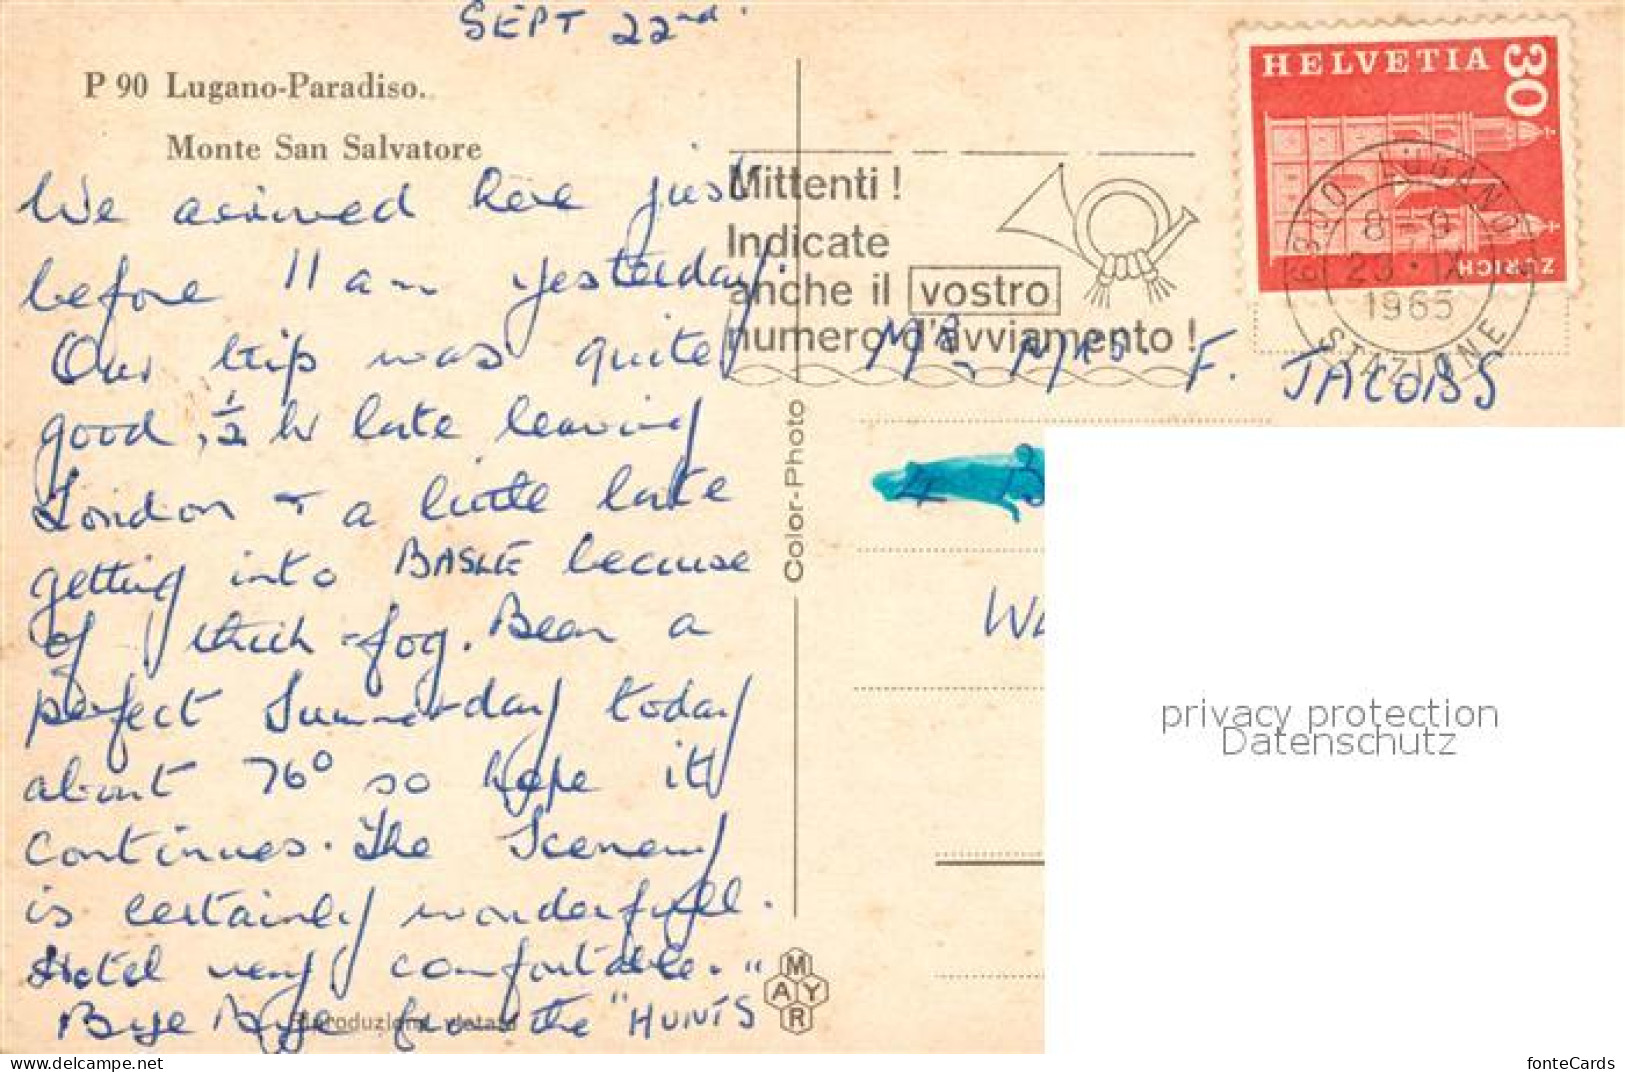 SEPT 22nd.
P 90 Lugano-Paradiso.
Monte San Salvatore
We arrived here just
before 11 am yesterday.
Our trip was quite
good, ½ hr late leaving
London + a little late
getting into BASLE because
of thick fog. Been a
perfect Summer day today
about 76° so hope it
continues. The Scenery
is certainly wonderfull.
Hotel very comfortable.
Bye Bye from the "HUNTS"
Riproduzione vietata
Color-Photo
MAYR
Mittenti !
Indicate
anche il vostro
numero d'avviamento !
HELVETIA
30
ZÜRICH
LUGANO
8-9
23.IX
1965
STAZIONE
MR. MRS. F. JACOBS
4
privacy protection
Datenschutz
fonteCards